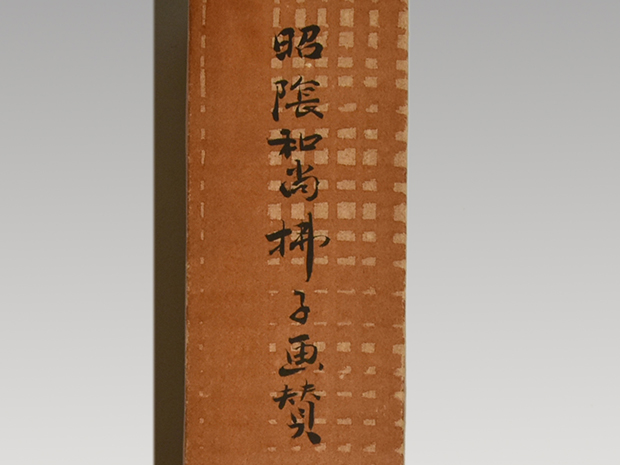 昭隠和尚拂子画賛